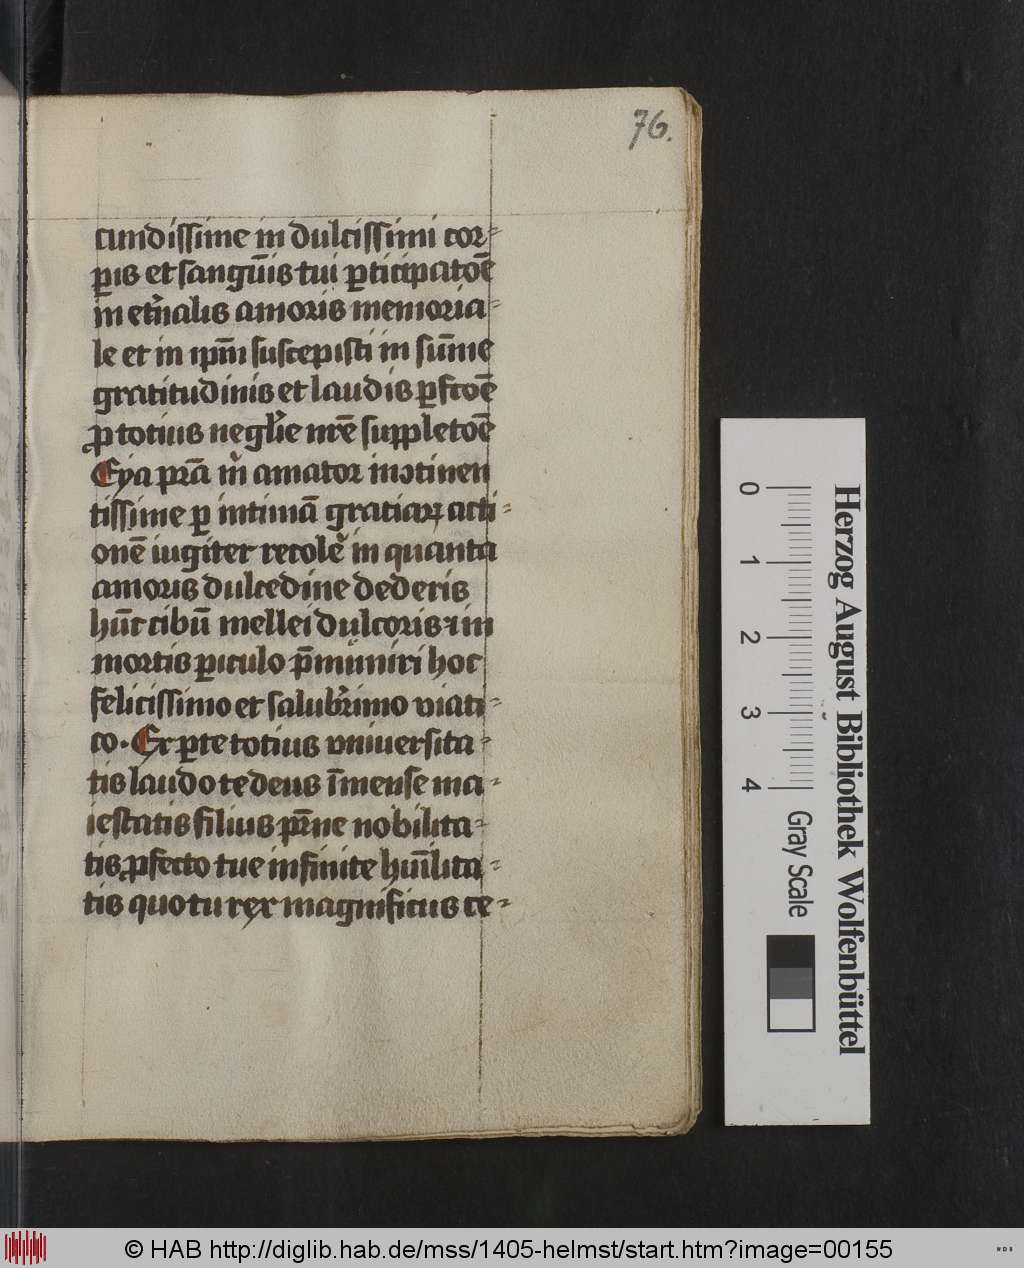 76.
cundissime in dulcissimi cor⸗
pꝛis et sangūis tui ꝑticipatōe
in etn̄alis amoris memoria⸗
le et in ipm̄ suscepisti in sūme
gratitudinis et laudis ꝑfcōe
ꝓ totius neglīe mr̄e suppletōe
Eya pr̄a m̄ amator inↄtinen
tissime ꝑ intimā gratiaꝝ acti⸗
onē iugiter recolē in quanta
amoris dulcedine dederis
hūc cibū mellei dulcoris ⁊ in
mortis ꝑiculo p̄muniri hoc
felicissimo et salubrimo viati⸗
co. Ex ꝑte totius vniuersita⸗
tis laudo te deus īmense ma⸗
iestatis filius pr̄ne nobilita⸗
tis ꝓfecto tue infinite hūilita⸗
tis quo tu rex magnificus ce⸗
0 1 2 3 4
Gray Scale
Herzog August Bibliothek Wolfenbüttel
© HAB http://diglib.hab.de/mss/1405-helmst/start.htm?image=00155